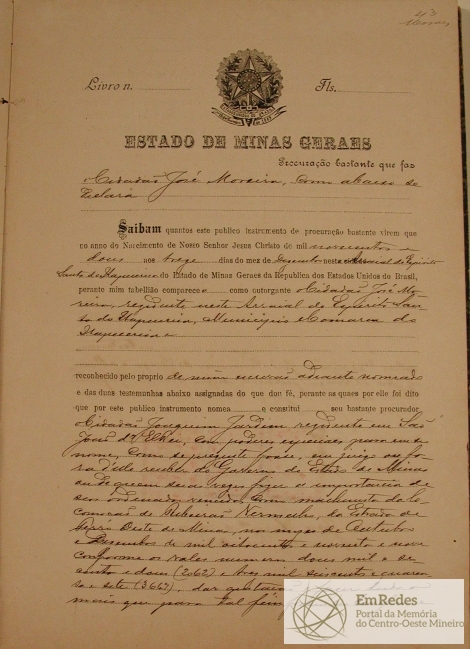 43
Livro n. Fls.
ESTADO DE MINAS GERAES
Procuração bastante que faz
o Cidadão José Moreira, como abaixo se
declara
Saibam quantos este publico instrumento de procuração bastante virem que
no anno do Nascimento de Nosso Senhor Jesus Christo de mil novecentos e
dous aos treze dias do mez de Dezembro neste Arraial do Espirito
Santo do Itapecerica do Estado de Minas Geraes da Republica dos Estados Unidos do Brasil,
perante mim tabellião compareceo como outorgante o Cidadão José Mo-
reira, residente neste Arraial do Espirito San-
to do Itapecerica, Municipio e Comarca do
Itapecerica
reconhecido pelo proprio de mim escrivão adiante nomeado
e das duas testemunhas abaixo assignadas do que dou fé, perante as quaes por elle foi dito
que por este publico instrumento nomea e constitui seu bastante procurador
o Cidadão Joaquim Jardim residente em São
João d'El Rei, com poderes especiaes para em seu
nome, como se presente fosse, em juizo ou fo-
ra d'elle receber do Governo do Estado de Minas
ou de quem suas vezes fizer a importancia de
seu ordenado vencido como machinista da lo-
de Ribeirão Vermelho, da Estrada de
Ferro Oeste de Minas, nos mezes de Outubro
e Dezembro de mil oitocentos e noventa e nove
conforme os vales numero dous mil e se-
e dous (2062) e tres mil seiscentos e quaren-
ta e sete (3647), dar quitação
mais que para tal fim
EmRedes
Portal da Memória
do Centro-Oeste Mineiro